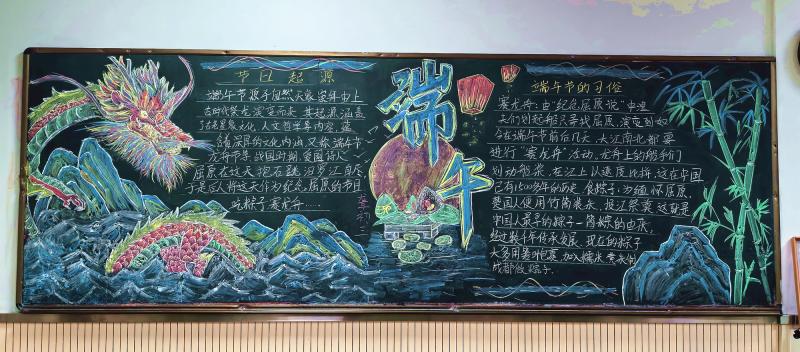 节日起源
端午节源于自然天象崇拜由上
古时代祭龙演变而来 其起源涵盖
了古老星象文化,人文哲学等内容,蕴
含着深厚的文化内涵,又称端午节
龙舟节等 战国时期 爱国诗人
屈原在这天抱石跳汨罗江自尽
于是后人将这天作为纪念屈原的节日
吃粽子 赛龙舟……
端午
端午节的习俗
赛龙舟:由"纪念屈原说"中迎
夫们划起船只寻找屈原,演变到如
今在端午节前后几天,大江南北都要
进行"赛龙舟"活动,龙舟上的船手们
划动船桨,在江上以速度比拼,这在中国
已有1500多年的历史 食粽子:为缅怀屈原,
楚国人使用竹筒装米,投江祭奠,这就是
中国人最早的粽子—筒粽的由来,
经过数千年传承发展,现在的粽子
大多用箬叶包裹,加入糯米
成都做粽子.